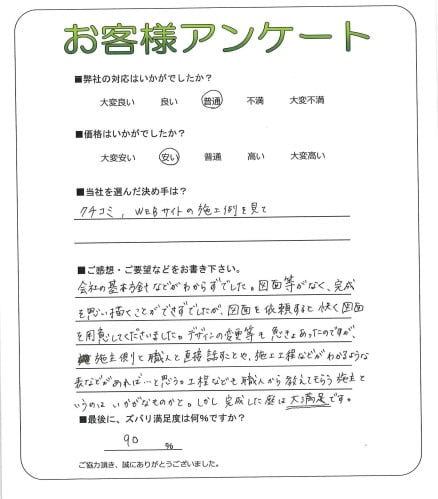 お客様アンケート
■弊社の対応はいかがでしたか？
大変良い 良い 普通 不満 大変不満
■価格はいかがでしたか？
大変安い 安い 普通 高い 大変高い
■当社を選んだ決め手は？
クチコミ, WEBサイトの施工例を見て
■ご感想・ご要望などをお書き下さい。
会社の基本方針などがわからずでした。図面等がなく、完成
を思い描くことができずでしたが、図面を依頼すると快く図面
を用意してくださいました。デザインの変更等も急きょあったのですが、
施主側と職人と直接話すことや、施工工程などがわかるような
表などがあれば…と思う。工程なども職人から教えてもらう施主と
いうのはいかがなものかと。しかし完成した庭は大満足です。
■最後に、ズバリ満足度は何%ですか？
90 %
ご協力頂き、誠にありがとうございました。